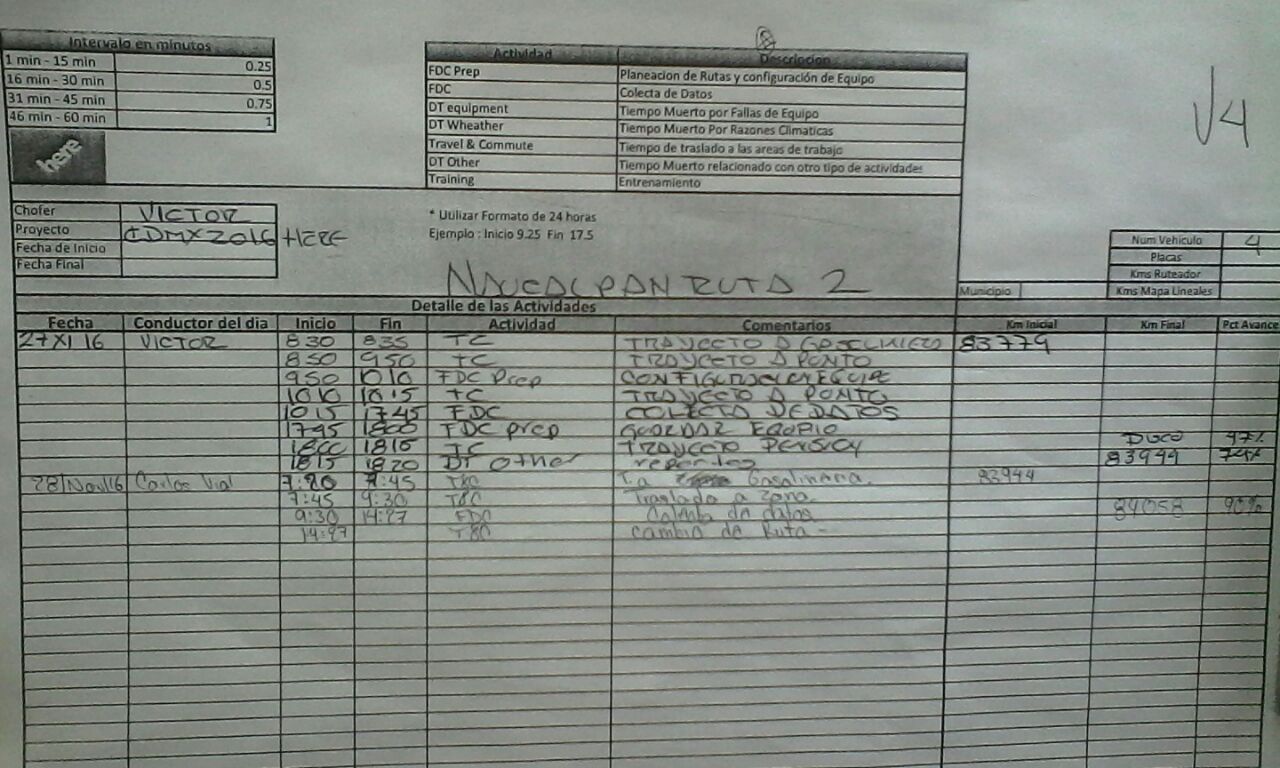 Intervalo en minutos
1 min - 15 min 0.25
16 min - 30 min 0.5
31 min - 45 min 0.75
46 min - 60 min 1
here
Actividad Descripcion
FDC Prep Planeacion de Rutas y configuración de Equipo
FDC Colecta de Datos
DT equipment Tiempo Muerto por Fallas de Equipo
DT Wheather Tiempo Muerto Por Razones Climaticas
Travel & Commute Tiempo de traslado a las areas de trabajo
DT Other Tiempo Muerto relacionado con otro tipo de actividades
Training Entrenamiento
V4
Chofer VICTOR
Proyecto CDMX2016 HERE
Fecha de Inicio
Fecha Final
* Utilizar Formato de 24 horas
Ejemplo : Inicio 9.25 Fin 17.5
Num Vehiculo 4
Placas
Kms Ruteador
Kms Mapa Lineales
NAUCALPAN RUTA 2
Municipio
Detalle de las Actividades
Fecha Conductor del dia Inicio Fin Actividad Comentarios Km Inicial Km Final Pct Avance
27 XI 16 VICTOR 830 835 TC TRAYECTO A 83779
850 950 TC TRAYECTO A PONTO
950 1010 FDC Prep
1010 1015 TC TRAYECTO A PONTO
1015 1745 FDC COLECTA DE DATOS
1745 1800 FDC prep GUARDAR EQUIPO
1800 1815 TC TRAYECTO PENSION
1815 1820 DT other reportes 83944 74%
28/Nov/16 Carlos Vial 7:20 7:45 T&C Gasolinera. 83944
7:45 9:30 T&C Traslado a zona.
9:30 14:27 FDC Colecta de datos 84058 90%
14:27 T&C cambio de Ruta -